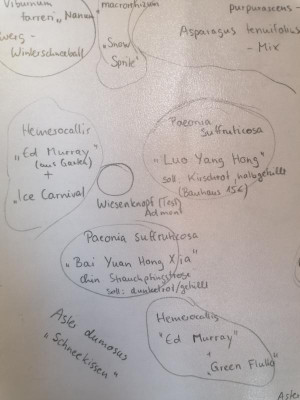 Viburnum
farreri „Nanum
Zwerg -
Winterschneeball
macrorhizum
„Snow
Sprite"
purpurascens -
Asparagus tenuifolius
- Mix
Hemerocallis
„Ed Murray"
(aus Garten)
+
„Ice Carnival
Paeonia
Suffruticosa
„Luo Yang Hong"
soll: Kirschrot, halbgefüllt
(Bauhaus 15€)
Wiesenknopf (Test)
Admont
Paeonia suffruticosa
„Bai Yuan Hong Xia"
chin Strauchpfingstrose
soll: dunkelrot/gefüllt
Aster dumosus
„Schneekissen"
Hemerocallis
"Ed Murray"
"Green Flutter"
Aster